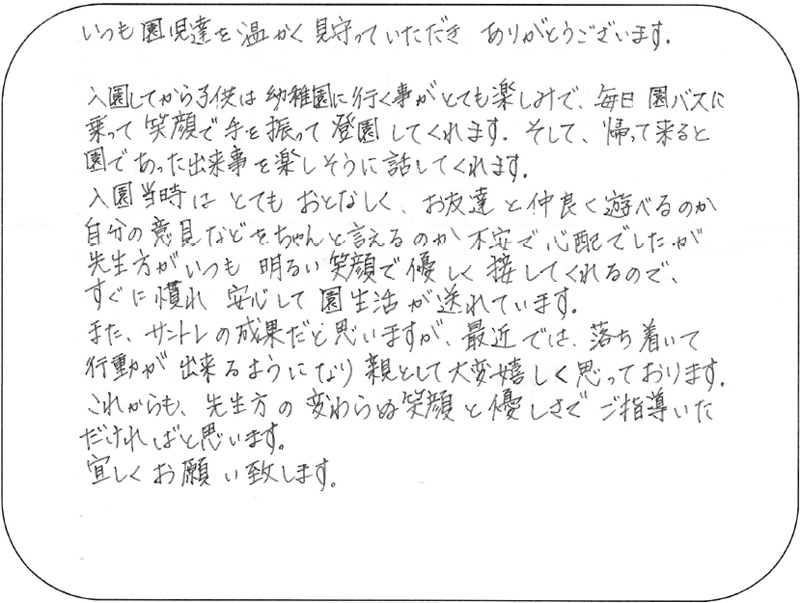 いつも園児達を温かく見守っていただき ありがとうございます。
入園してから子供は幼稚園に行く事がとても楽しみで、毎日園バスに
乗って笑顔で手を振って登園してくれます。そして、帰って来ると
園であった出来事を楽しそうに話してくれます。
入園当時はとてもおとなしく、お友達と仲良く遊べるのか
自分の意見などをちゃんと言えるのか不安で心配でしたが
先生方がいつも明るい笑顔で優しく接してくれるので、
すぐに慣れ安心して園生活が送れています。
また、サントレの成果だと思いますが、最近では、落ち着いて
行動が出来るようになり親として大変嬉しく思っております。
これからも、先生方の変わらぬ笑顔と優しさでご指導いた
だければと思います。
宜しくお願い致します。